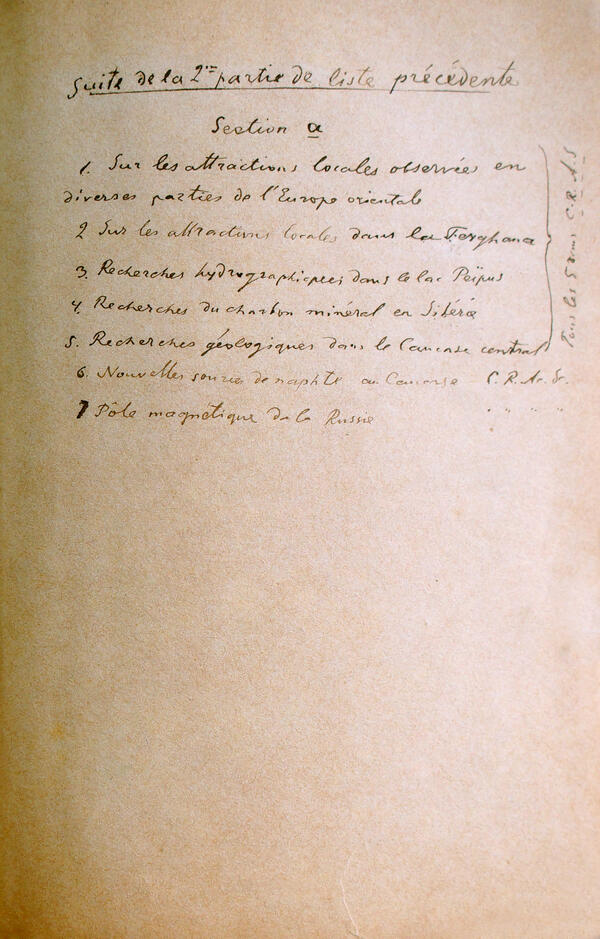 Suite de la 2me partie de liste précédente
Section a
1. Sur les attractions locales observées en
diverses parties de l'Europe orientale
2 Sur les attractions locales dans la Ferghana
3. Recherches hydrographiques dans le lac Peïpus
4. Recherches du charbon minéral en Sibérie
5. Recherches géologiques dans le Caucase central
6. Nouvelles sources de naphte au Caucase C. R. Ac. S.
7 Pôle magnétique de la Russie " " "
Tous les 5 dans C. R. A. S